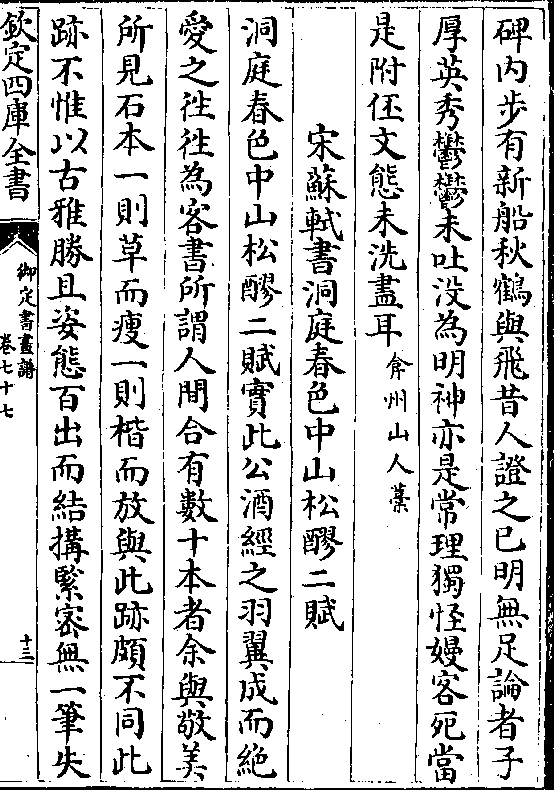 碑内步有新船秋鶴與飛昔人證之已明無足論者子
厚英秀鬱鬱未吐没為明神亦是常理獨怪嫚客死當
是附伾文態未洗盡耳弇州山人藳
宋蘇軾書洞庭春色中山松醪二賦
洞庭春色中山松醪二賦實此公酒經之羽翼成而絶
愛之徃徃為客書所謂人間合有數十本者余與敬美
所見石本一則草而瘦一則楷而放與此跡頗不同此
跡不惟以古雅勝且姿態百出而結搆緊密無一筆失
欽定四庫全書
御定書畫譜
卷七十七
十三